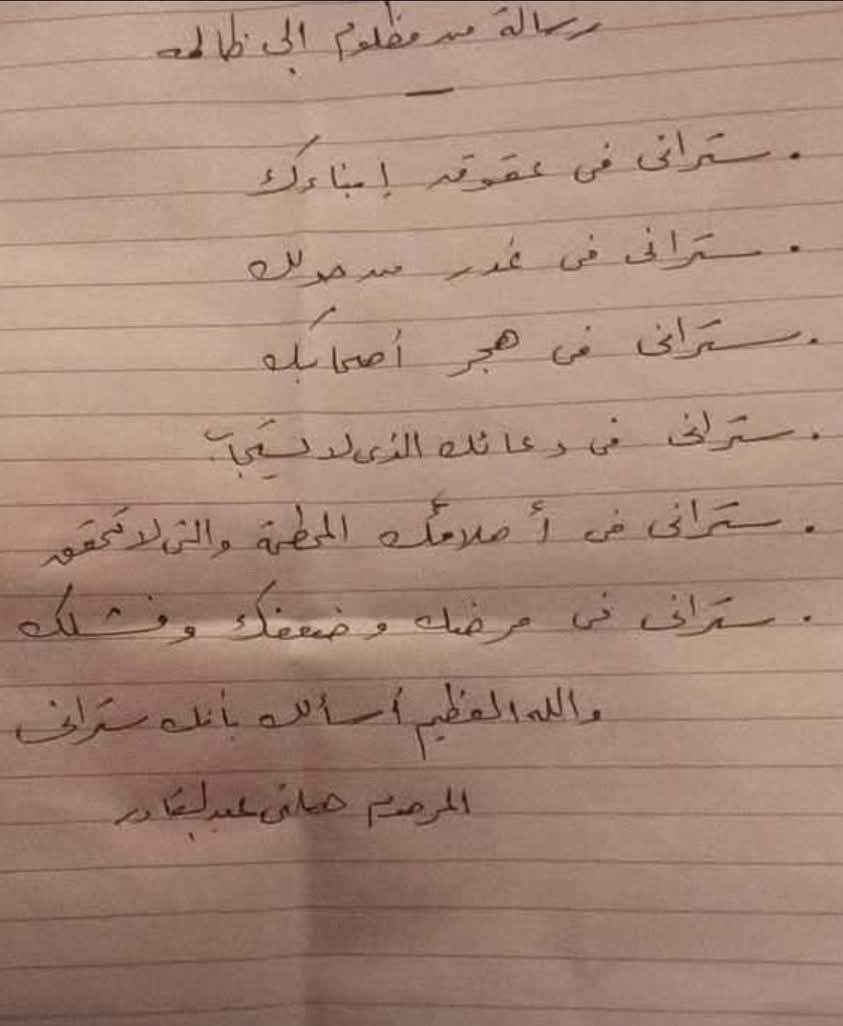 رسالة من مظلوم الى ظالمه
. ستراني في عقوق إبناءك
. ستراني في غدر من حولك
. ستراني في هجر أصحابك
. ستراني في دعائك الذي لا يستجاب
. ستراني في أحلامك المحطمة والتي لا تتحقق
. ستراني في مرضك وضعفك وفشلك
والله العظيم أسألك بأنك ستراني
المرحوم هاني عبدالقادر